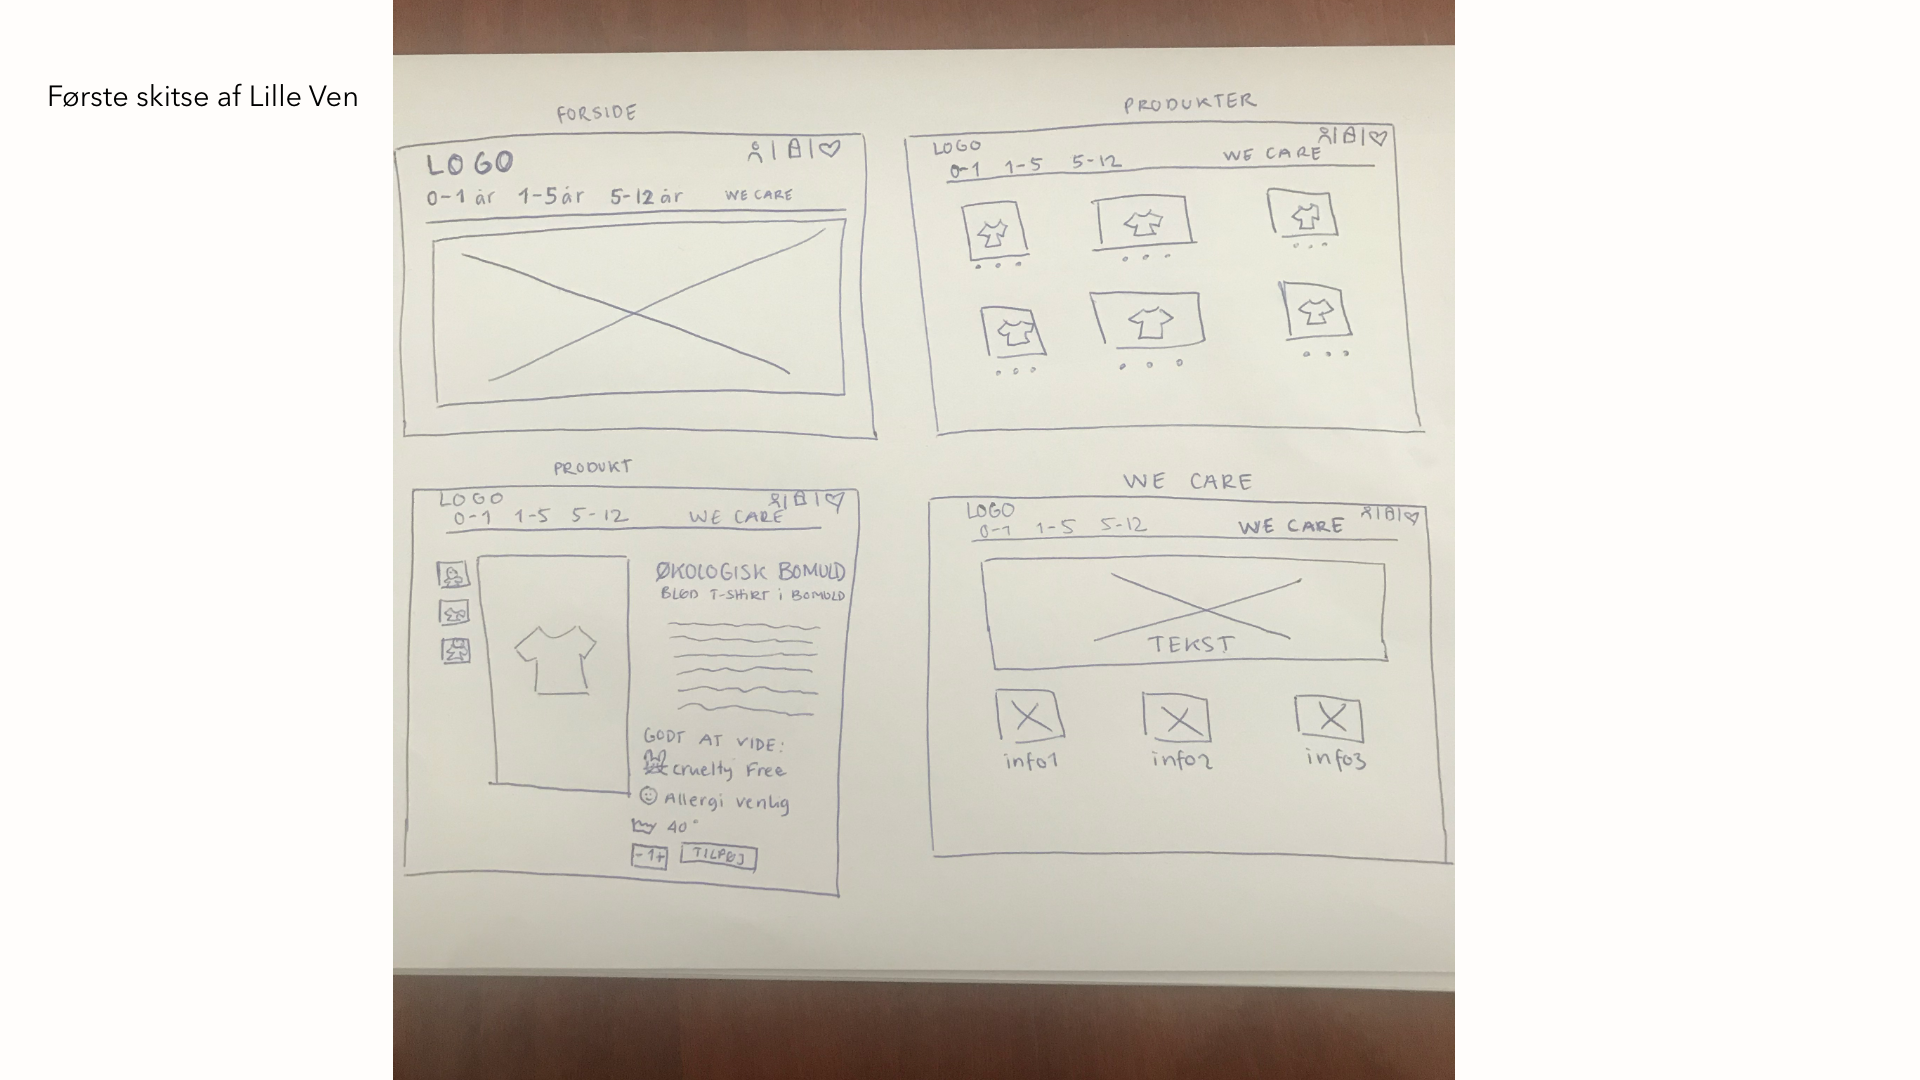 Første skitse af Lille Ven
FORSIDE
LOGO
0-1 år 1-5 år 5-12 år WE CARE
PRODUKTER
LOGO
0-1 1-5 5-12 WE CARE
PRODUKT
LOGO
0-1 1-5 5-12 WE CARE
ØKOLOGISK BOMULD
BLØD T-SHIRT i BOMULD
GODT AT VIDE:
cruelty Free
Allergi venlig
40°
- 1 + TILFØJ
WE CARE
LOGO
0-1 1-5 5-12 WE CARE
TEKST
info1 info2 info3